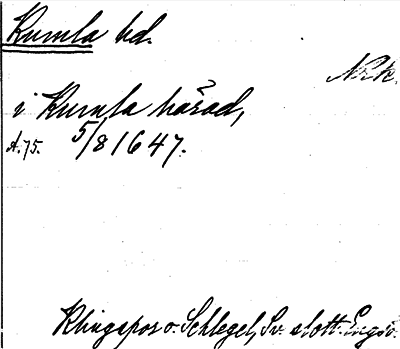 Kumla hd.
Nrk.
i Kumla härad,
A.75. 5/8 1647.
Klingspor o. Schlegel, Sv. slott. Engsö.